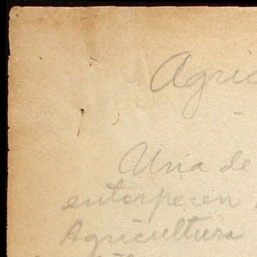 Agric
Una de
entorpecen
Agricultura